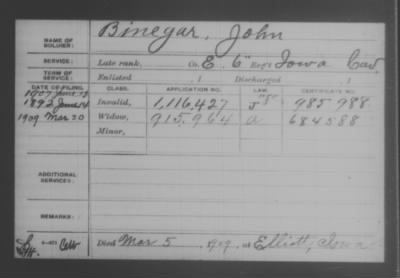 NAME OF SOLDIER: Binegar, John
SERVICE: Late rank, Co. E, 6" Reg't Iowa Cav.
TERM OF SERVICE: Enlisted , 1 Discharged , 1
DATE OF FILING. CLASS. APPLICATION NO. LAW. CERTIFICATE NO.
1907 June "S"
1892 June 14 Invalid, 1,116,427 J 985 988
1909 Mar 20 Widow, 915,964 a 684588
Minor,
ADDITIONAL SERVICES:
REMARKS:
Died Mar 5, 1909, at Elliott, Iowa